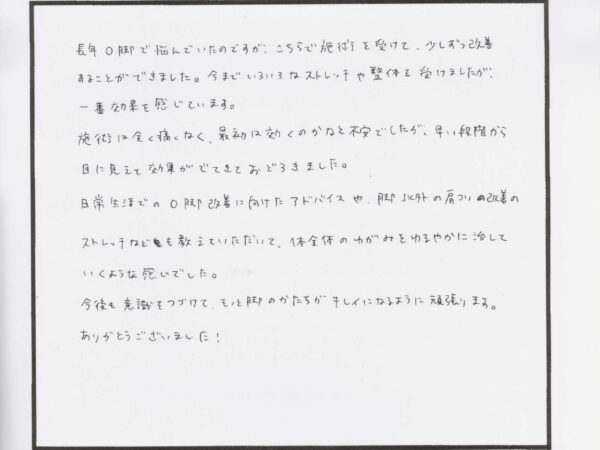 長年O脚で悩んでいたのですが、こちらで施術を受けて、少しずつ改善
することができました。今までいろいろなストレッチや整体を受けましたが、
一番効果を感じています。
施術は全く痛くなく、最初は効くのかなと不安でしたが、早い段階から
目に見えて効果がでてきておどろきました。
日常生活でのO脚改善に向けたアドバイスや、脚以外の肩コリの改善の
ストレッチなども教えていただいて、体全体のゆがみをゆるやかに治して
いくような感じでした。
今後も意識をつづけて、もっと脚のかたちがキレイになるように頑張ります。
ありがとうございました！